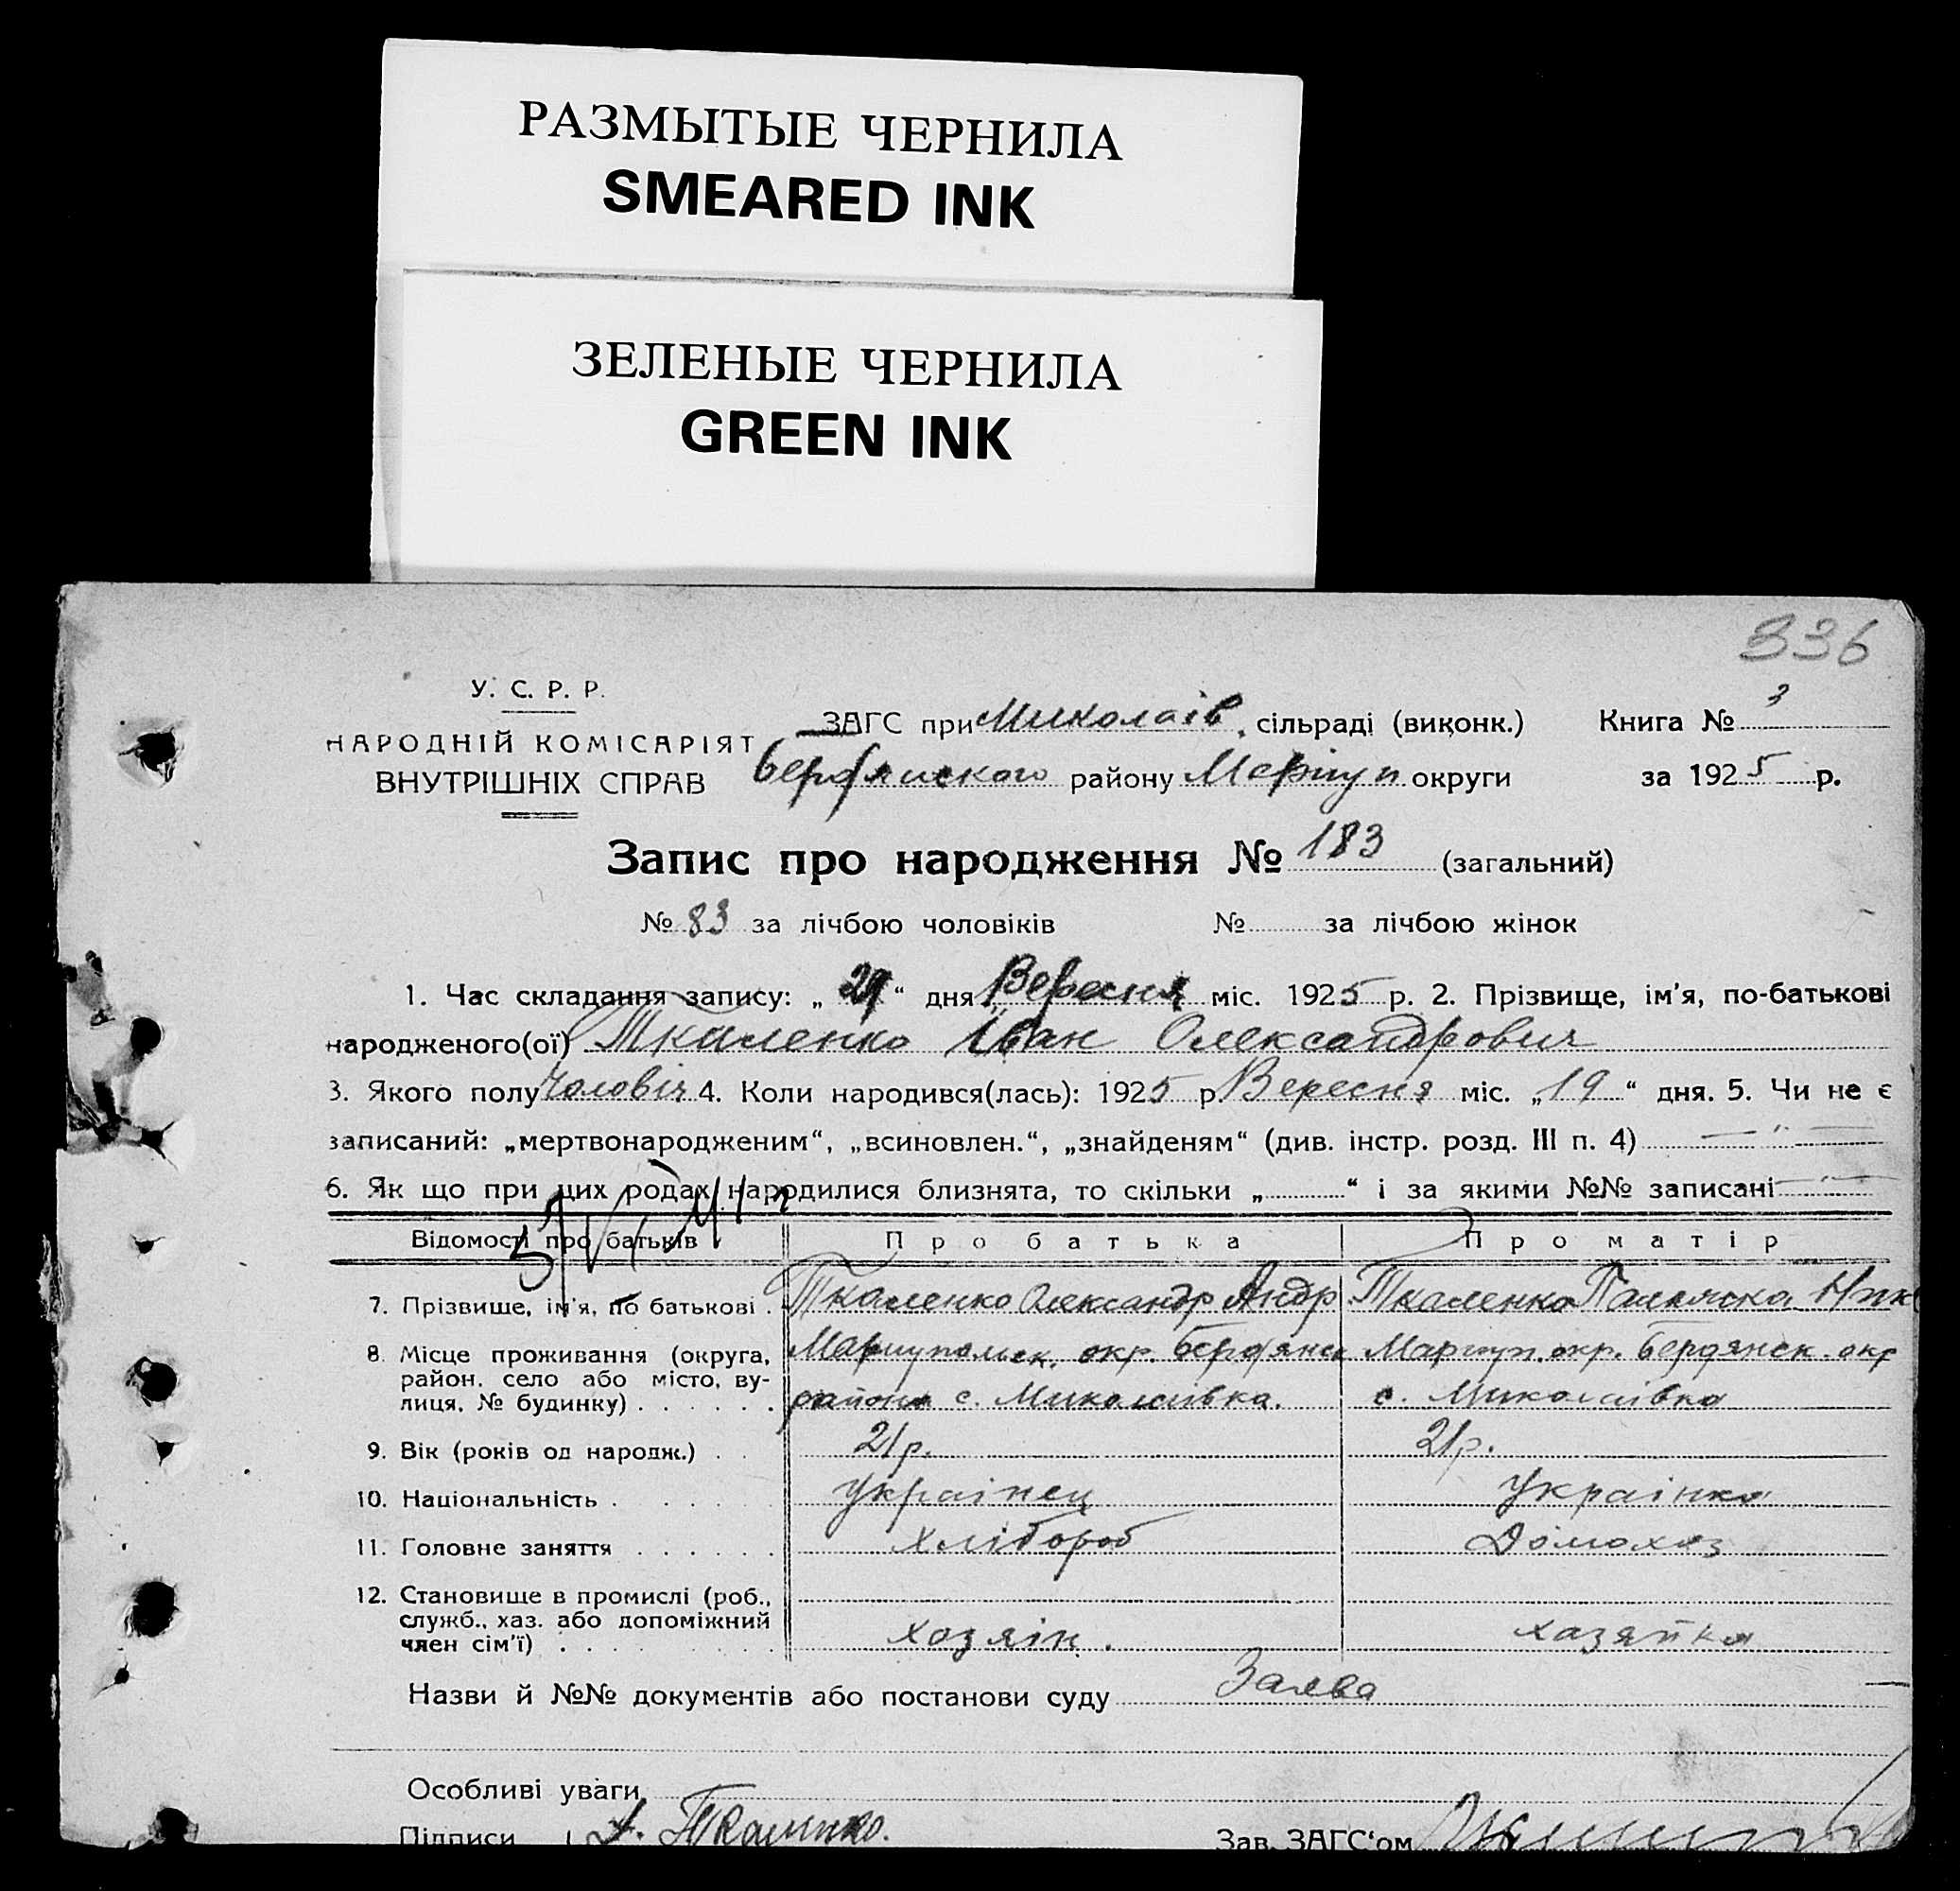 РАЗМЫТЫЕ ЧЕРНИЛА
SMEARED INK
ЗЕЛЕНЫЕ ЧЕРНИЛА
GREEN INK
336
У. С. Р. Р.
НАРОДНІЙ КОМІСАРІЯТ
ВНУТРІШНІХ СПРАВ
ЗАГС при Миколаїв. сільраді (виконк.) Книга № 3
Бердянского району Маріуп округи за 1925 р.
Запис про народження № 183 (загальний)
№ 83 за лічбою чоловіків № за лічбою жінок
1. Час складання запису: „ 29 “ дня Вересня міс. 1925 р. 2. Прізвище, ім’я, по-батькові
народженого(ої) Ткаленко Іван Олександрович
3. Якого полу Чоловіч 4. Коли народився(лась): 1925 р Вересня міс. „ 19 “ дня. 5. Чи не є
записаний: „мертвонародженим“, „всиновлен.“, „знайденям“ (див. інстр. розд. III п. 4) — " —
6. Як що при цих родах народилися близнята, то скільки „ “ і за якими №№ записані
Відомості про батьків Про батька Про матір
7. Прізвище, ім’я, по батькові . Ткаленко Олександр Андр Ткаленко
8. Місце проживання (округа, район, село або місто, вулиця, № будинку) . . . . . .
Маріупольск. окр. Бердянск Маріуп. окр. Бердянск. окр
района с. Миколаївка. с. Миколаївка
9. Вік (років од народж.) . . 21р. 21р.
10. Національність . . . . . українец українка
11. Головне заняття . . . . . . хлібороб Домохоз
12. Становище в промислі (роб., служб., хаз. або допоміжний член сім’ї) . . . . . . . . .
хозяін. хазяйка
Назви й №№ документів або постанови суду Заява
Особливі уваги
Підписи А. Ткаленко. Зав. ЗАГС‘ом